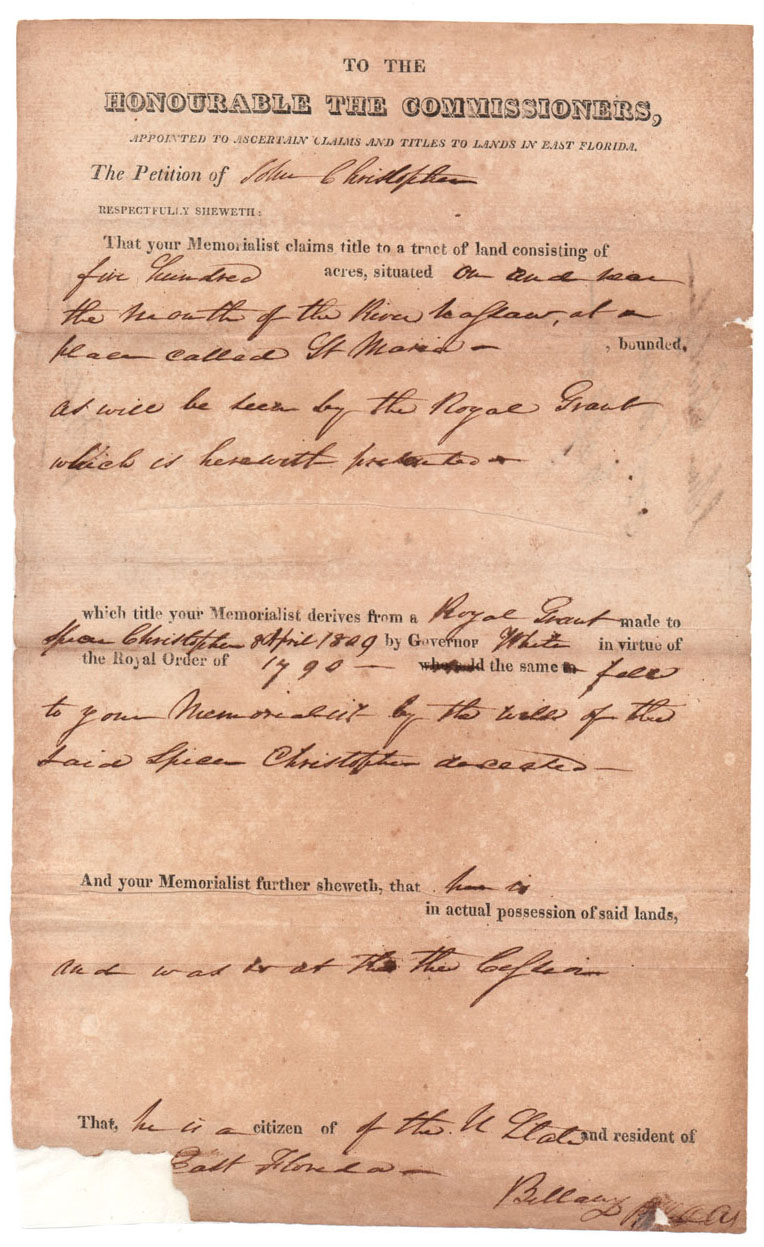 TO THE
HONOURABLE THE COMMISSIONERS,
APPOINTED TO ASCERTAIN CLAIMS AND TITLES TO LANDS IN EAST FLORIDA.
The Petition of John Christopher
RESPECTFULLY SHEWETH:
That your Memorialist claims title to a tract of land consisting of
five hundred acres, situated on and near
the mouth of the River Nassau, at a
place called St Maria — , bounded,
as will be seen by the Royal Grant
which is herewith presented —
which title your Memorialist derives from a Royal Grant made to
Spicer Christopher 8 April 1809 by Governor White in virtue of
the Royal Order of 1790 — the same fell
to your Memorialist by the will of the
said Spicer Christopher deceased —
And your Memorialist further sheweth, that he is
in actual possession of said lands,
and was so at the Cession
That, he is a citizen of of the U States and resident of
East Florida —
Bellamy